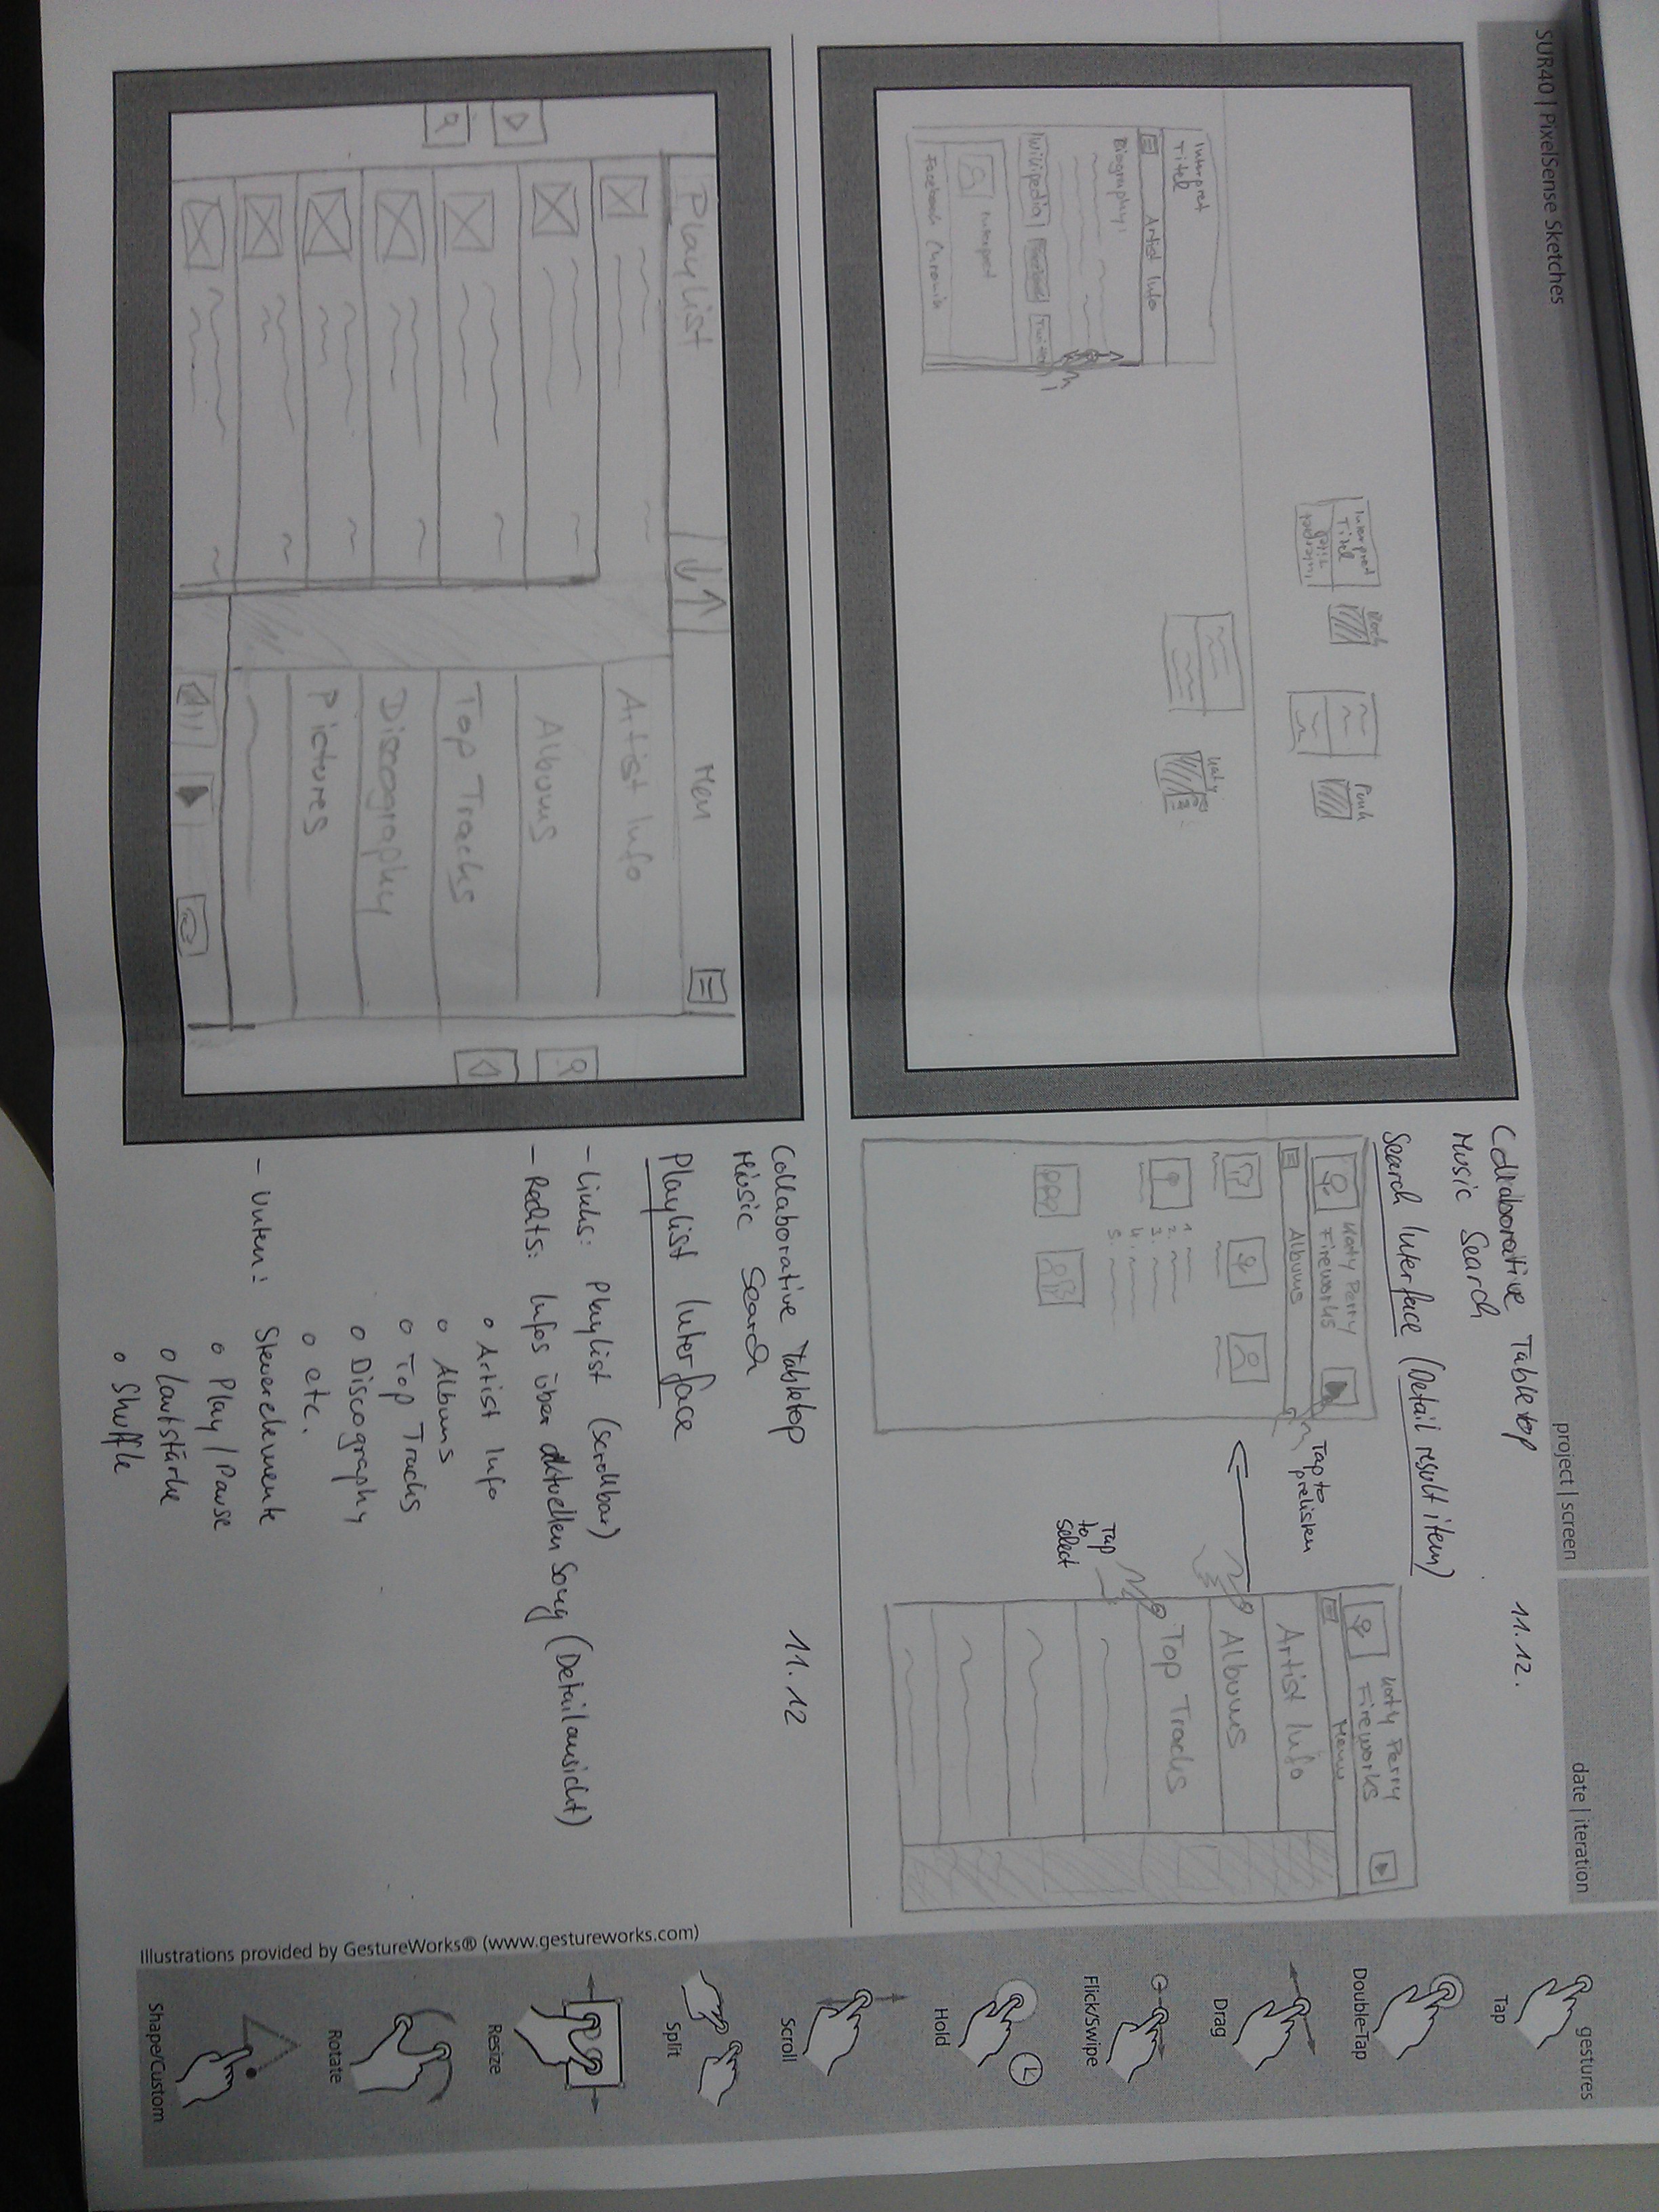 SUR40 | PixelSense Sketches
project | screen
date | iteration
gestures
Interpret
Titel
Artist Info
Biography:
Wikipedia Facebook Twitter
Interpret
Facebook Chronik
Interpret
Titel
Titel
Interpret
Rock
Punk
Katy
Collaborative Tabletop
Music Search
11.12.
Search Interface (Detail result item)
Katy Perry
Fireworks
Albums
1.
2.
3.
4.
5.
Tap to
prelisten
Tap
to
select
Katy Perry
Fireworks
Menu
Artist Info
Albums
Top Tracks
Playlist
Menu
Artist Info
Albums
Top Tracks
Discography
Pictures
Collaborative Tabletop
Music Search
11.12
Playlist Interface
- Links: Playlist (scrollbar)
- Rechts: Infos über aktuellen Song (Detailansicht)
o Artist Info
o Albums
o Top Tracks
o Discography
o etc.
- Unten: Steuerelemente
o Play / Pause
o Lautstärke
o Shuffle
Tap
Double-Tap
Drag
Flick/Swipe
Hold
Scroll
Split
Resize
Rotate
Shape/Custom
Illustrations provided by GestureWorks® (www.gestureworks.com)